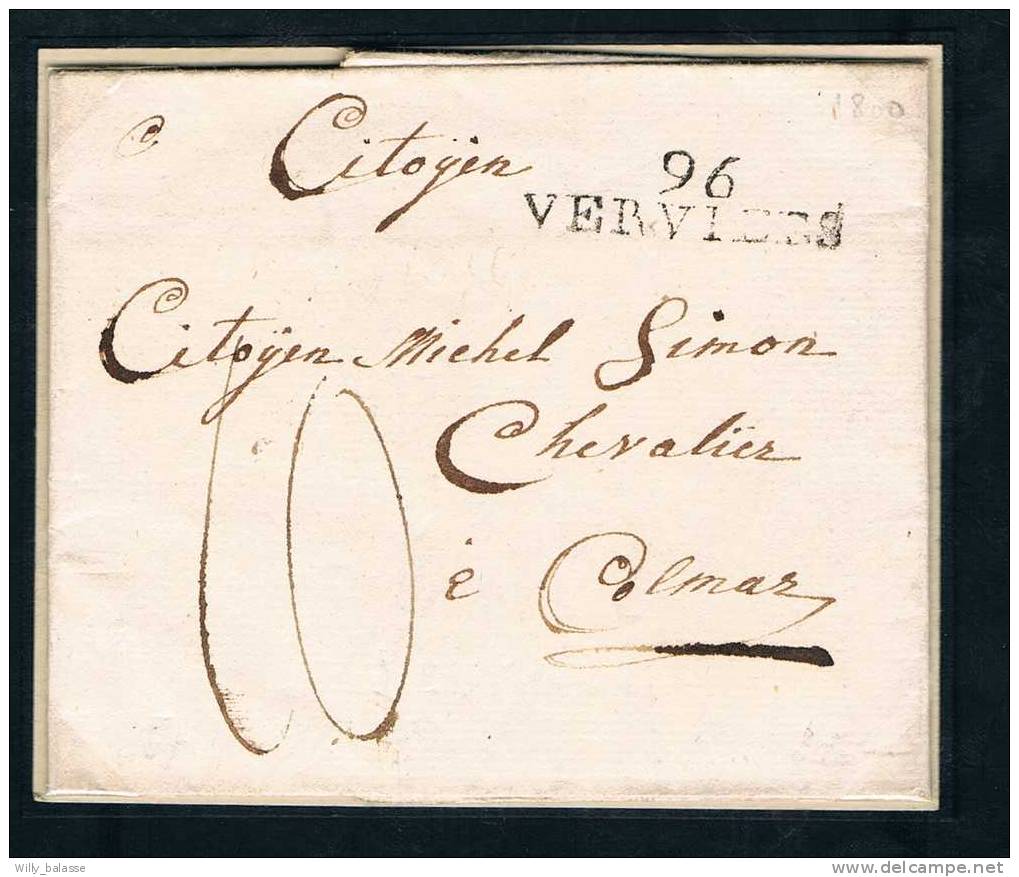 1800
Citoÿen
96
VERVIERS
Citoÿen Michel Simon
Chevalier
à Colmar
10
Willy_balasse
www.delcampe.net